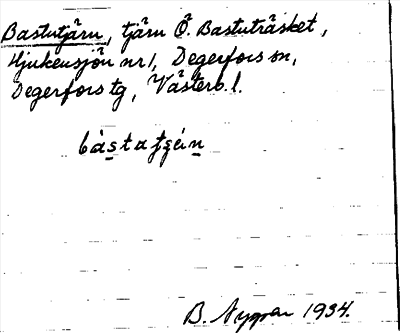 Bastutjärn, tjärn Ö. Bastuträsket,
Hjukensjön nr 1, Degerfors sn,
Degerfors tg, Västerb. l.
B. Nyman 1934.